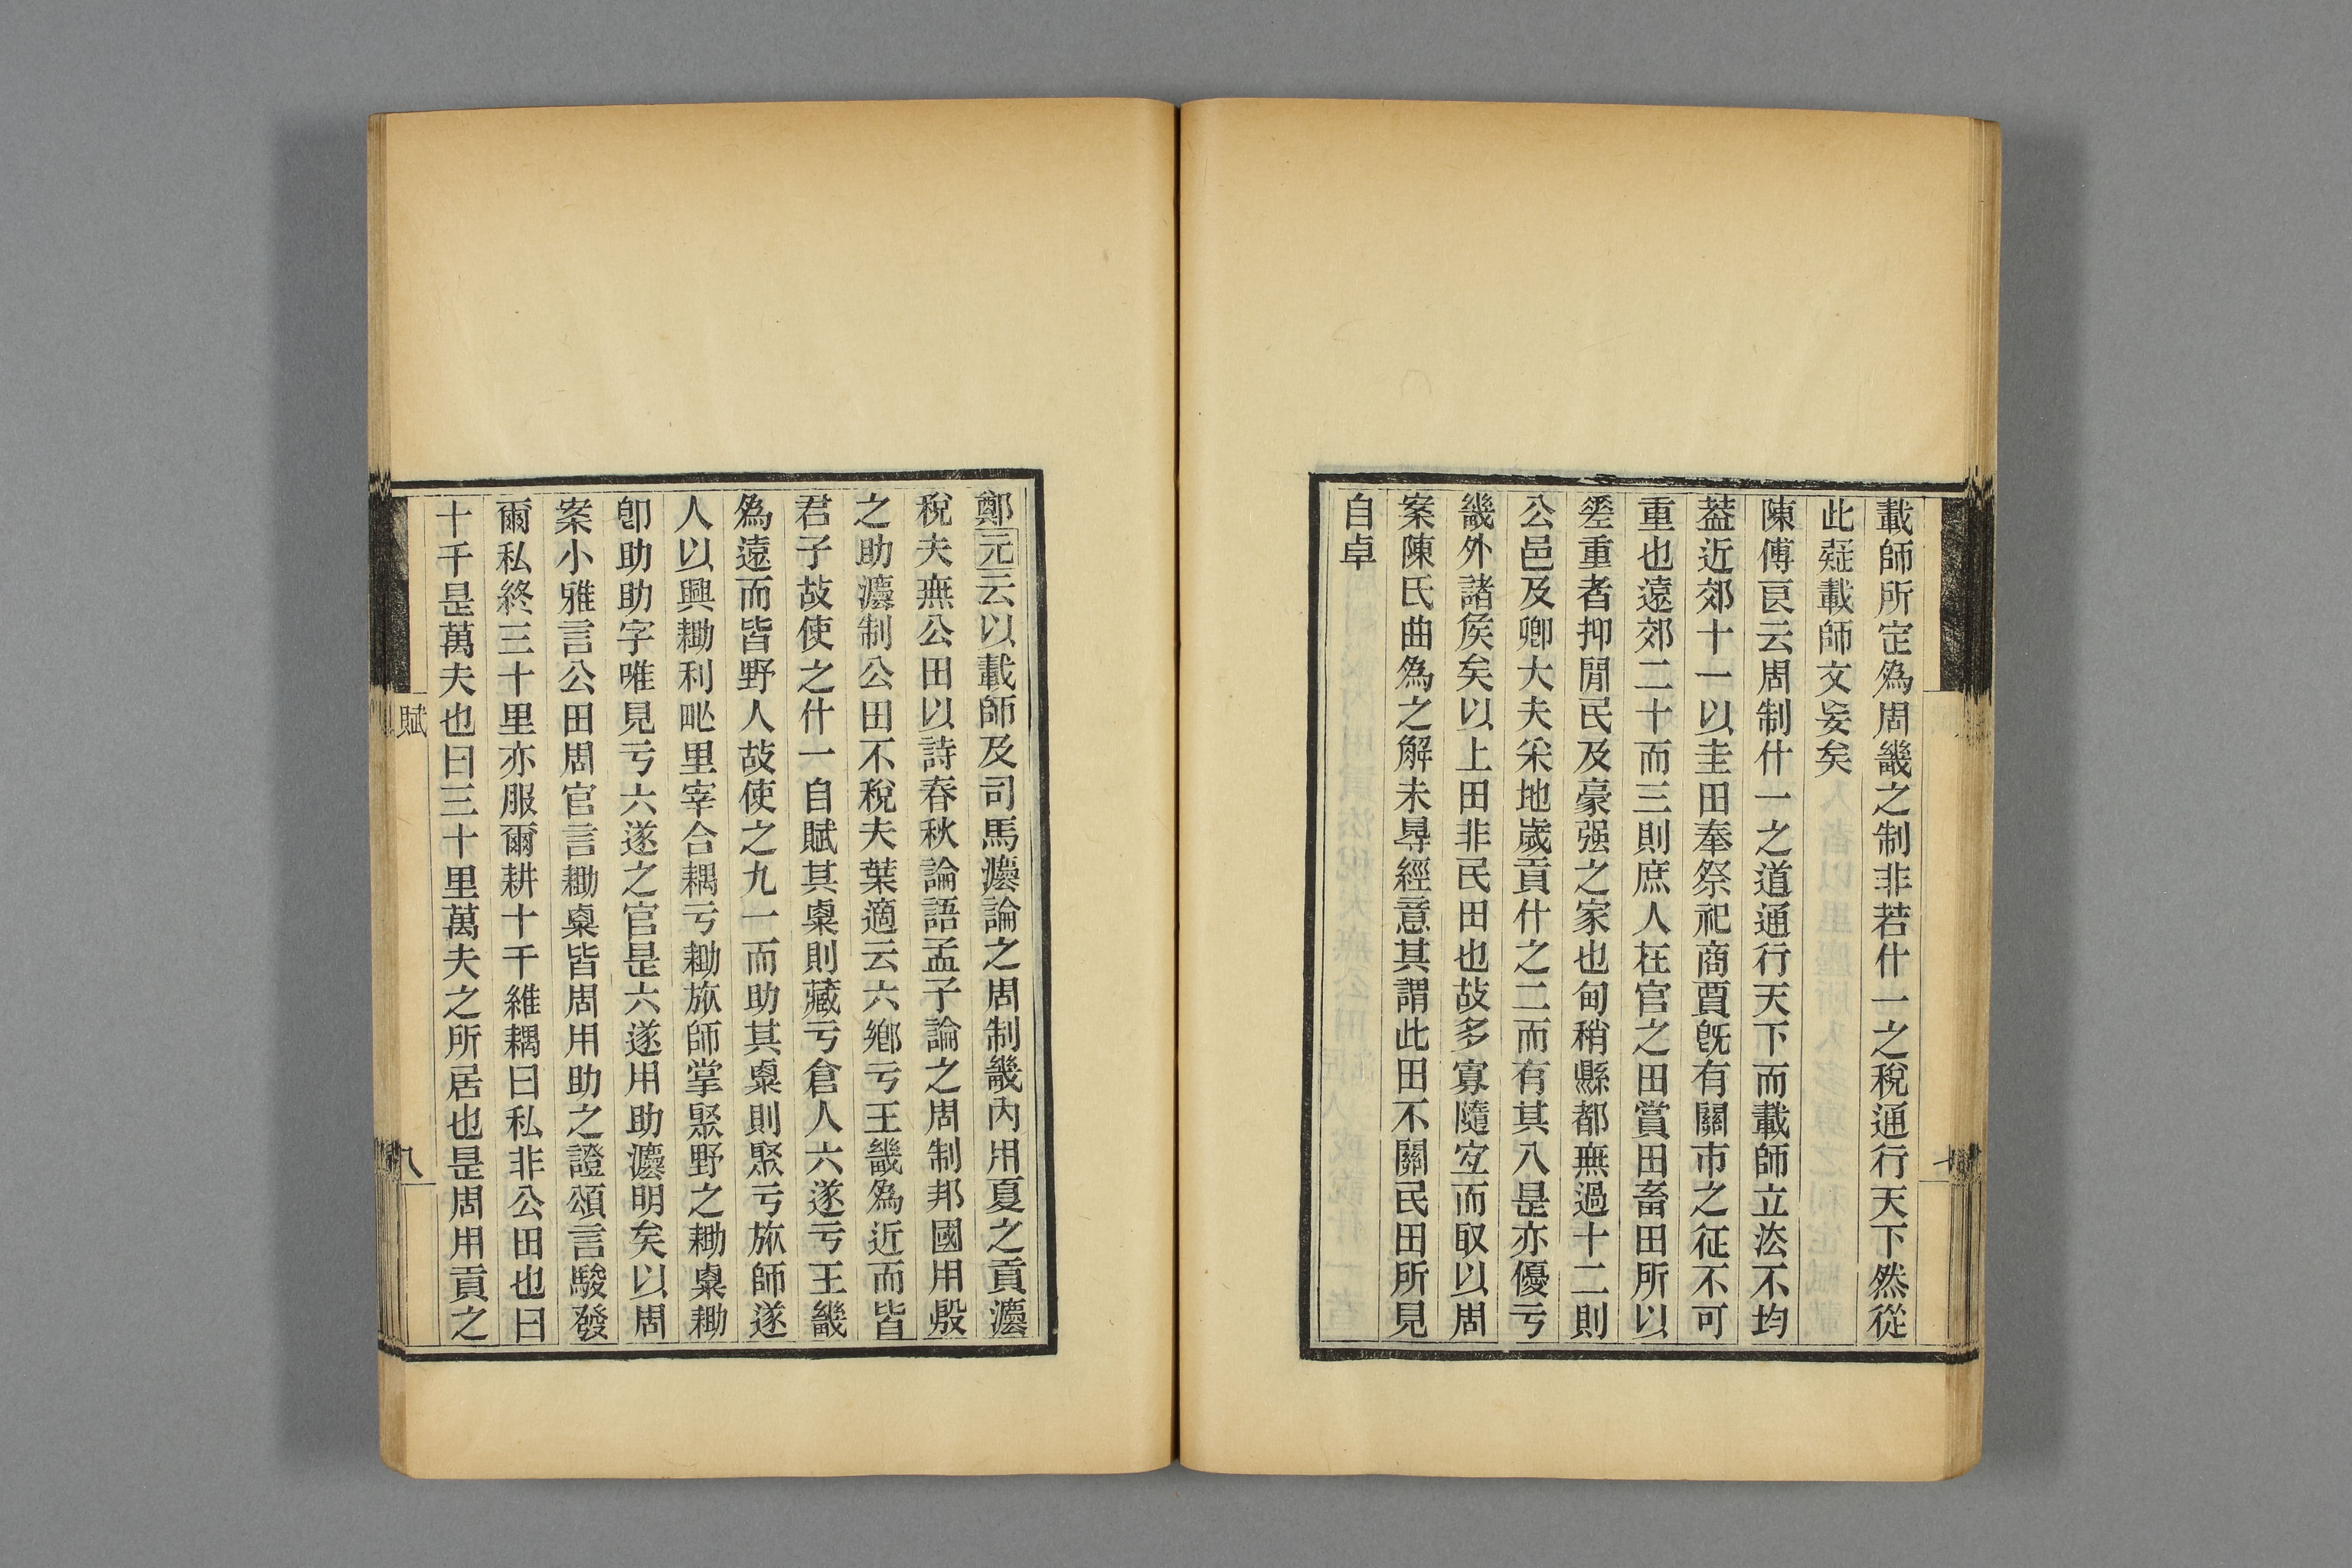 載師所定爲周畿之制非若什一之稅通行天下然從
此疑載師文妄矣
陳傅良云周制什一之道通行天下而載師立法不均
葢近郊十一以圭田奉祭祀商賈旣有關市之征不可
重也遠郊二十而三則庶人在官之田賞田畜田所以
差重者抑閒民及豪强之家也甸稍縣都無過十二則
公邑及卿大夫采地歲貢什之二而有其八是亦優亏
畿外諸矦矣以上田非民田也故多寡隨宜而取以周
案陳氏曲爲之解未㝵經意其謂此田不關民田所見
自卓
鄭元云以載師及司馬灋論之周制畿內用夏之貢灋
稅夫無公田以詩春秋論語孟子論之周制邦國用殷
之助灋制公田不稅夫葉適云六鄉亏王畿爲近而皆
君子故使之什一自賦其粟則藏亏倉人六遂亏王畿
爲遠而皆野人故使之九一而助其粟則聚亏旅師遂
人以興耡利甿里宰合耦亏耡旅師掌聚野之耡粟耡
卽助助字唯見亏六遂之官是六遂用助灋明矣以周
案小雅言公田周官言耡粟皆周用助之證頌言駿發
爾私終三十里亦服爾耕十千維耦曰私非公田也曰
十千是萬夫也曰三十里萬夫之所居也是周用貢之
賦
八